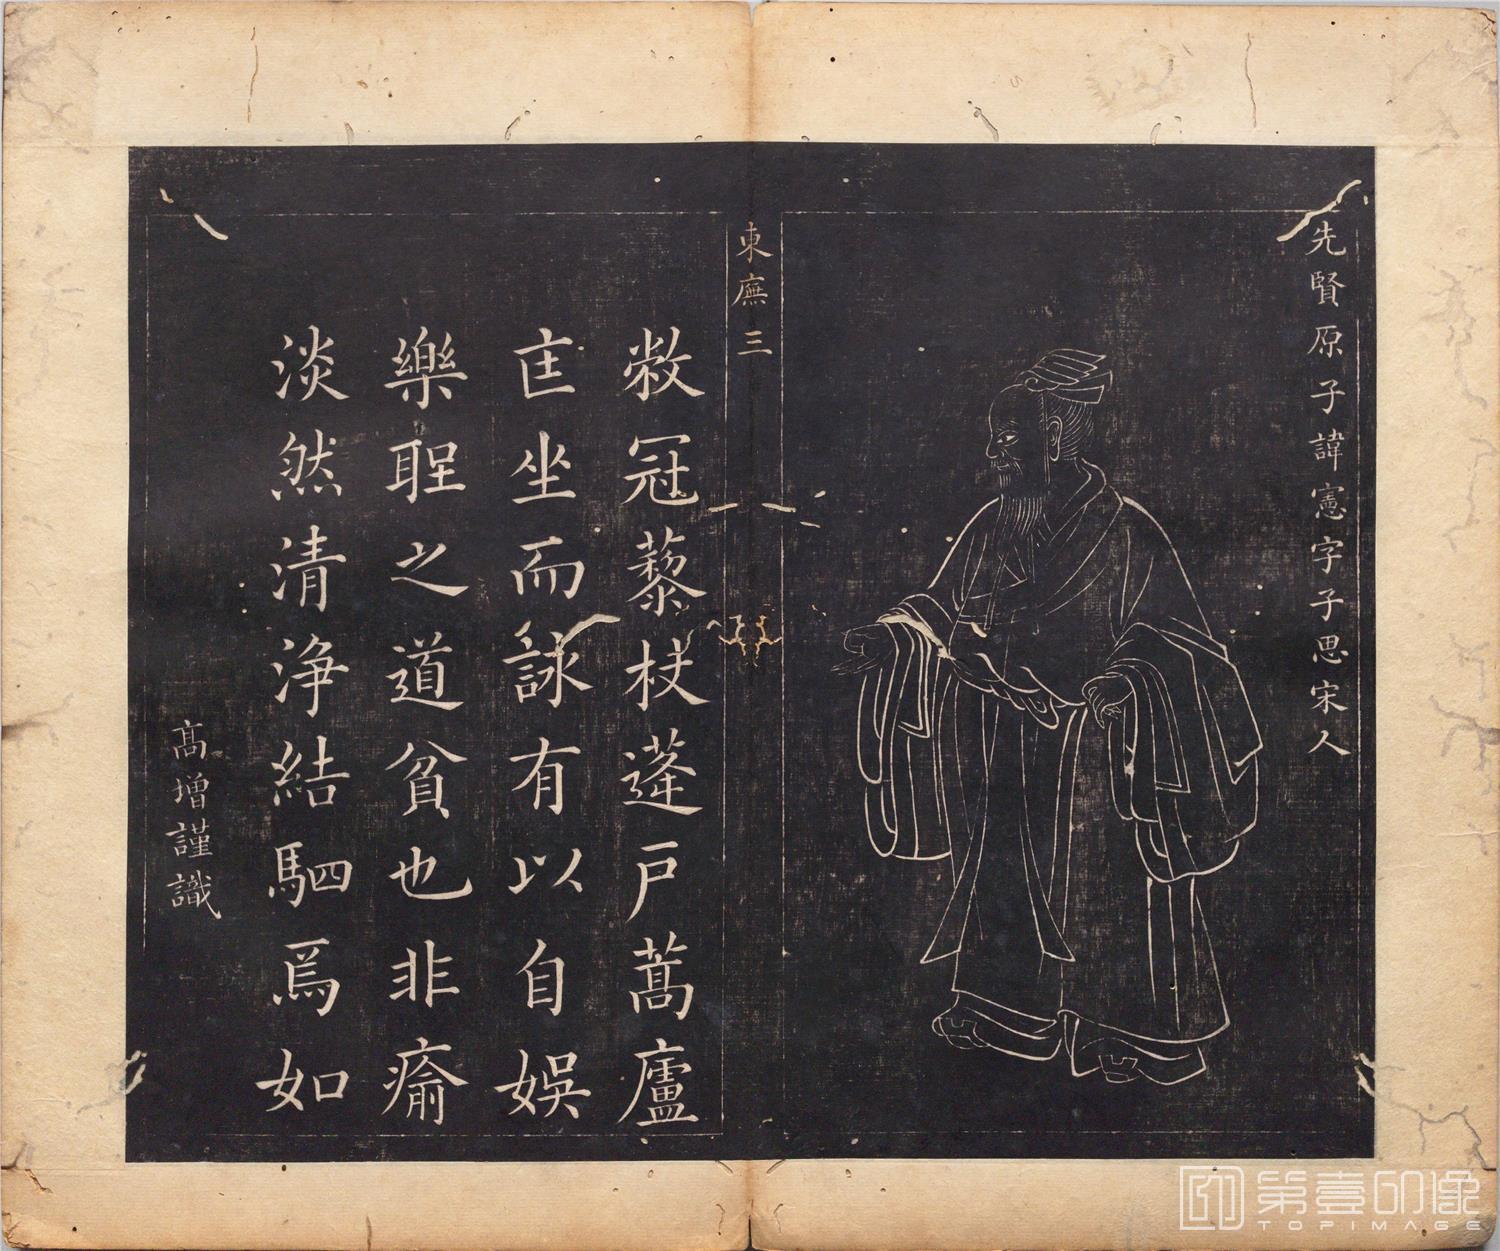 先賢原子諱憲字子思宋人
東廡三
敝冠藜杖蓬戸蒿廬
匡坐而詠有以自娛
樂聖之道貧也非癠
淡然清淨結駟焉如
高增謹識
第壹印像
TOPIMAGE